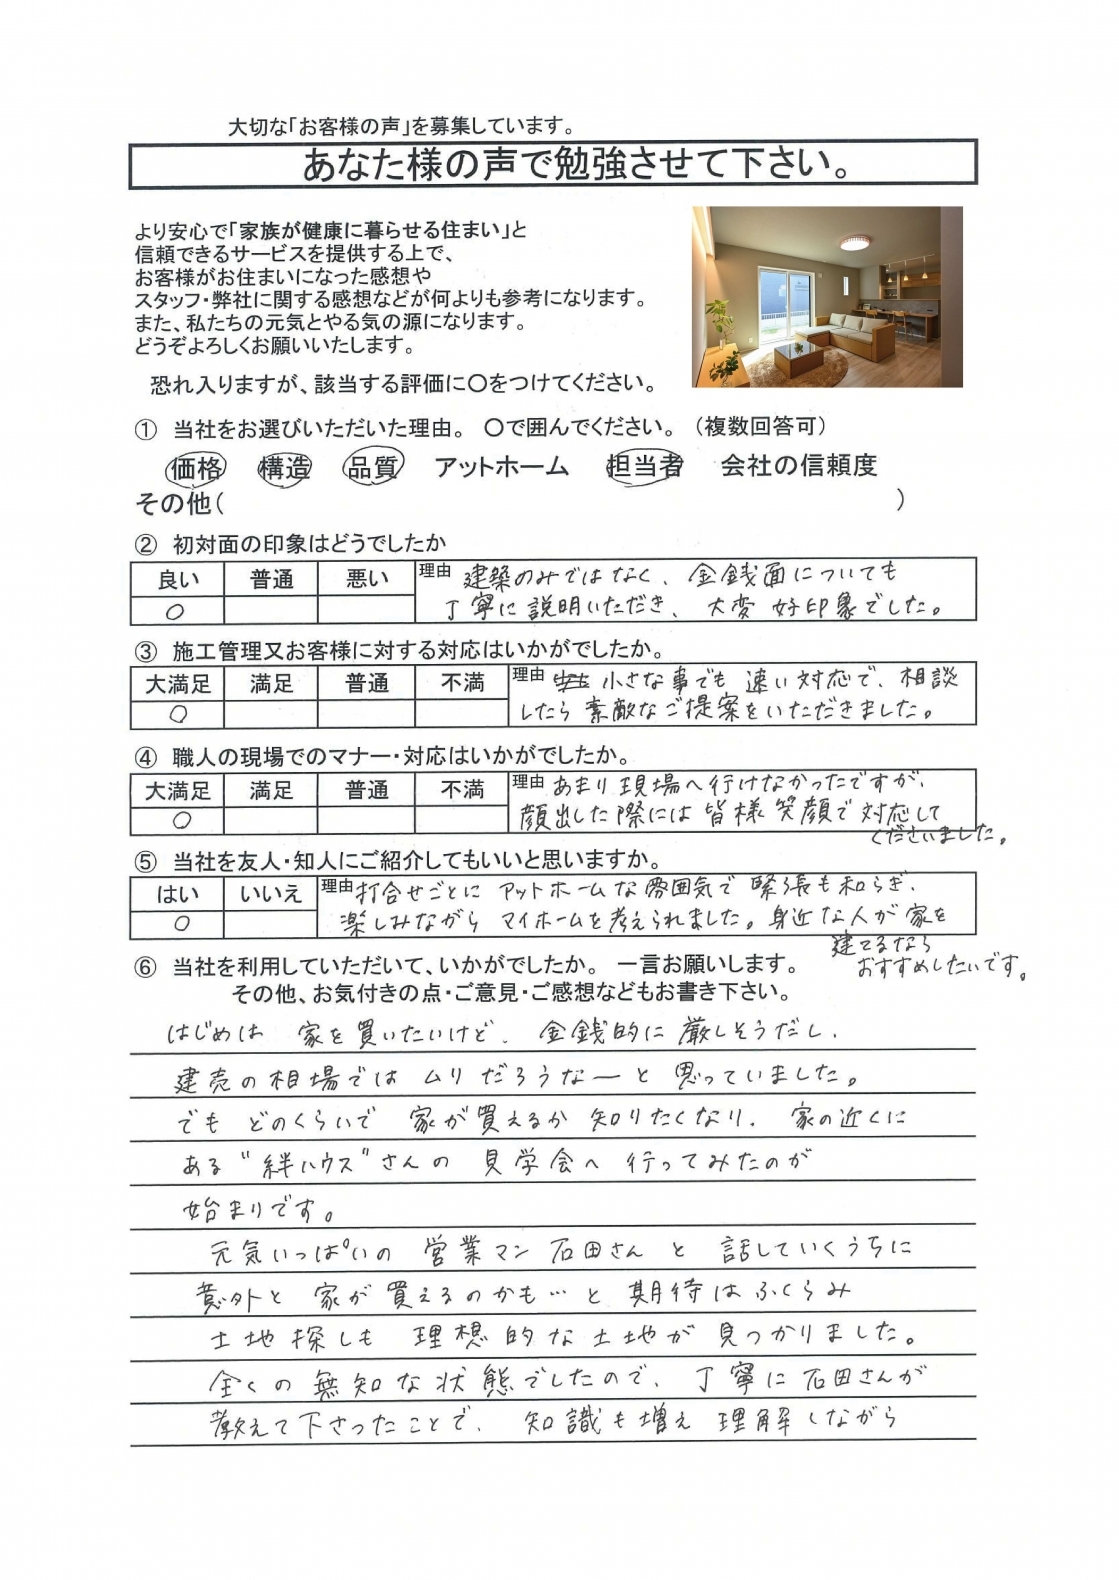 大切な「お客様の声」を募集しています。
あなた様の声で勉強させて下さい。
より安心で「家族が健康に暮らせる住まい」と
信頼できるサービスを提供する上で、
お客様がお住まいになった感想や
スタッフ・弊社に関する感想などが何よりも参考になります。
また、私たちの元気とやる気の源になります。
どうぞよろしくお願いいたします。
恐れ入りますが、該当する評価に〇をつけてください。
① 当社をお選びいただいた理由。 〇で囲んでください。 （複数回答可）
価格 構造 品質 アットホーム 担当者 会社の信頼度
その他（ ）
② 初対面の印象はどうでしたか
良い 普通 悪い 理由 建築のみではなく、金銭面についても
○ 丁寧に説明いただき、大変好印象でした。
③ 施工管理又お客様に対する対応はいかがでしたか。
大満足 満足 普通 不満 理由 小さな事でも速い対応で、相談
○ したら素敵なご提案をいただきました。
④ 職人の現場でのマナー・対応はいかがでしたか。
大満足 満足 普通 不満 理由 あまり現場へ行けなかったですが、
○ 顔出した際には皆様笑顔で対応して
くださいました。
⑤ 当社を友人・知人にご紹介してもいいと思いますか。
はい いいえ 理由 打合せごとにアットホームな雰囲気で緊張も和らぎ、
○ 楽しみながらマイホームを考えられました。身近な人が家を
建てるなら
おすすめしたいです。
⑥ 当社を利用していただいて、いかがでしたか。 一言お願いします。
その他、お気付きの点・ご意見・ご感想などもお書き下さい。
はじめは 家を買いたいけど、金銭的に厳しそうだし、
建売の相場ではムリだろうなーと思っていました。
でもどのくらいで家が買えるか知りたくなり、家の近くに
ある"絆ハウス"さんの見学会へ行ってみたのが
始まりです。
元気いっぱいの営業マン石田さんと話していくうちに
意外と家が買えるのかも…と期待はふくらみ
土地探しも理想的な土地が見つかりました。
全くの無知な状態でしたので、丁寧に石田さんが
教えて下さったことで、知識も増え理解しながら